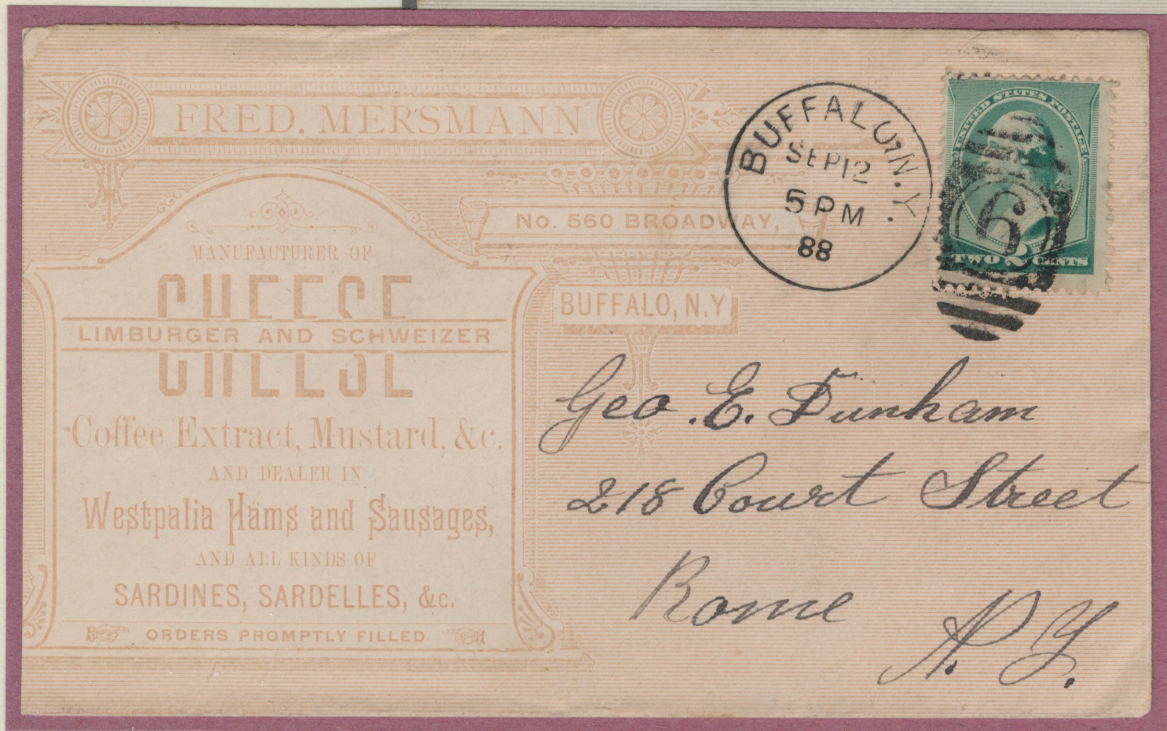 FRED. MERSMANN
No. 560 BROADWAY,
BUFFALO, N.Y
MANUFACTURER OF
CHEESE
LIMBURGER AND SCHWEIZER
CHEESE
Coffee Extract, Mustard, &c.
AND DEALER IN
Westpalia Hams and Sausages,
AND ALL KINDS OF
SARDINES, SARDELLES, &c.
ORDERS PROMPTLY FILLED
BUFFALO, N.Y.
SEP 12
5 PM
88
UNITED STATES POSTAGE
6
TWO 2 CENTS
Geo. E. Dunham
218 Court Street
Rome
N. Y.